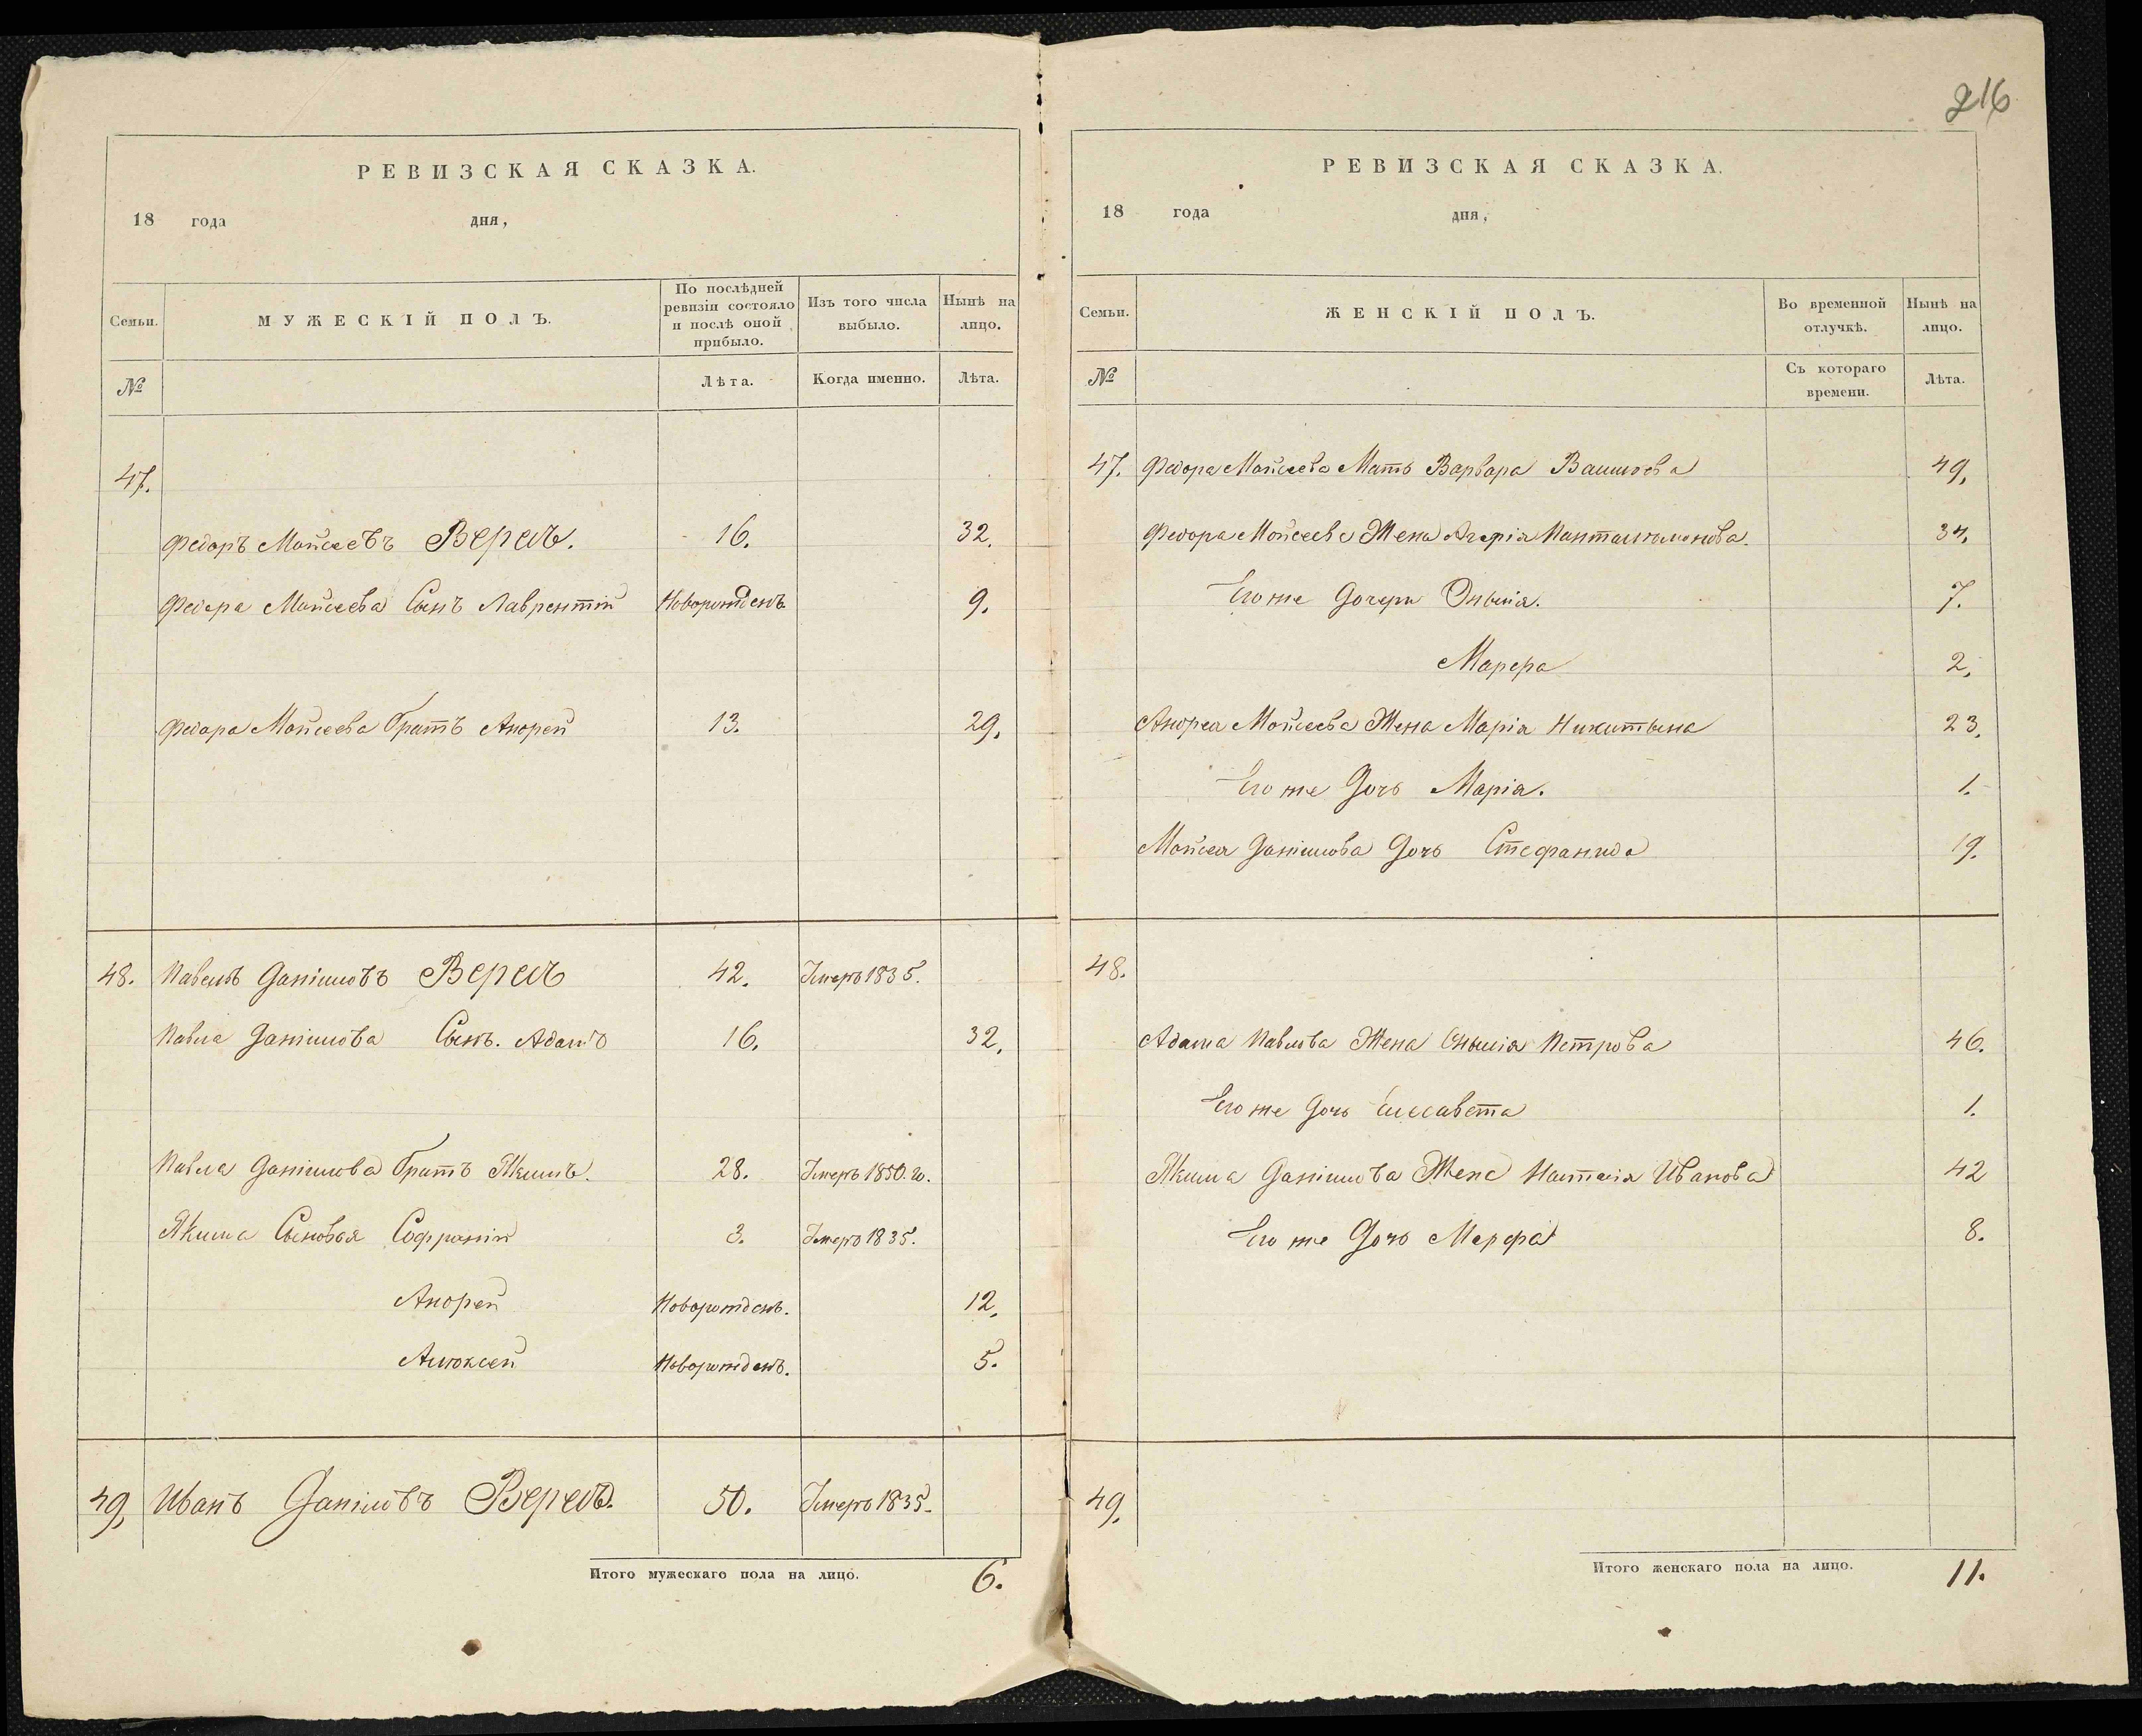 216
РЕВИЗСКАЯ СКАЗКА.
18 года дня,
Семьи.
МУЖЕСКІЙ ПОЛЪ.
По послѣдней
ревизіи состояло
и послѣ оной
прибыло.
Изъ того числа
выбыло.
Нынѣ на
лицо.
№
Лѣта.
Когда именно.
Лѣта.
47.
Федоръ Моисеевъ 16. 32.
Федора Моисеева Сынъ Лаврентій Новорожденъ 9.
Федора Моисеева братъ Андрей 13. 29.
48. Павелъ Даниловъ 42. Умеръ 1835.
Павла Данилова Сынъ. Адамъ 16. 32.
Павла Данилова братъ Якимъ. 28. Умеръ 1850. го.
Якима Сыновья Софроній 3. Умеръ 1835.
Андрей Новорожденъ. 12.
Алексей Новорожденъ. 5.
49. Иванъ Даниловъ 50. Умеръ 1835.
Итого мужескаго пола на лицо. 6.
РЕВИЗСКАЯ СКАЗКА.
18 года дня,
Семьи.
ЖЕНСКІЙ ПОЛЪ.
Во временной
отлучкѣ.
Нынѣ на
лицо.
№
Съ котораго
времени.
Лѣта.
47. Федора Моисеева Мать Варвара 49.
Федора Моисеева Жена Агафія 34.
Его же дочери 7.
Марфа 2.
Андрея Моисеева Жена Марія Никитына 23.
Его же Дочь Марія. 1.
Моисея Данилова Дочь Стефанида 19.
48.
Адама Павлова Жена Петрова 46.
Его же Дочь Елесавета 1.
Якима Данилова Жена Настасія Иванова 42
Его же Дочь Марфа 8.
49.
Итого женскаго пола на лицо. 11.